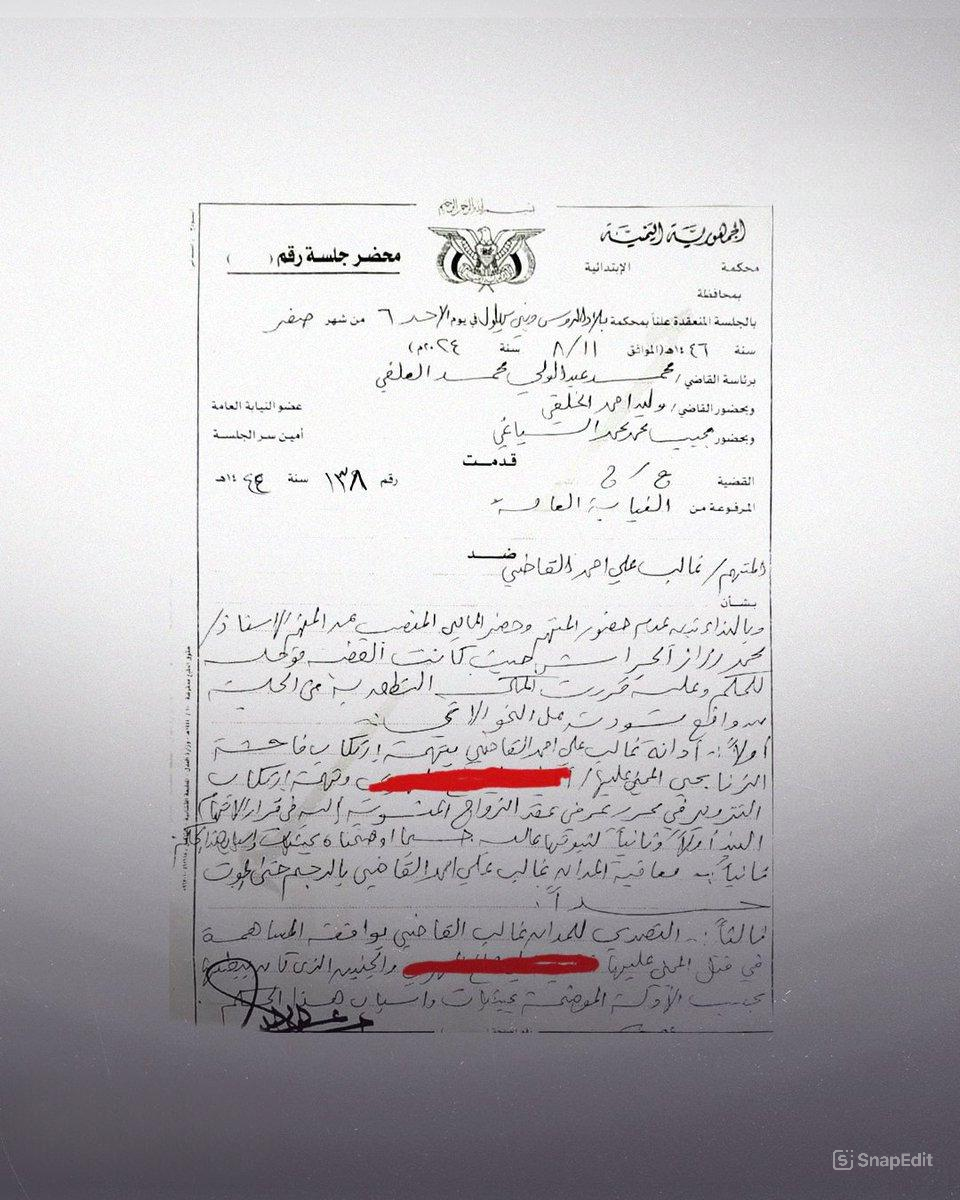 بسم الله الرحمن الرحيم
الجمهورية اليمنية
محكمة الإبتدائية
محضر جلسة رقم ( )
بمحافظة
بالجلسة المنعقدة علناً بمحكمة بلاد الروس وبني بهلول في يوم الاحد ٦ من شهر صفر
سنة ١٤٤٦هـ (الموافق ٨/١١ سنة ٢٠٢٤م)
برئاسة القاضي/ محمد عبدالولي محمد العلفي
وبحضور القاضي/ وليد احمد الخلقي عضو النيابة العامة
وبحضور مجيب محمد محمد السياغي أمين سر الجلسة
قدمت
القضية ج/ج رقم ١٣٨ سنة ١٤٤٤هـ
المرفوعة من النيابة العامة
ضد
المتهم/ غالب علي احمد القاضي
بشأن
وبالنداء تبين عدم حضور المتهم وحضر المحامي المنصب عن المتهم الاستاذ/
محمد رزاز الحراسي حيث كانت القضية مؤجلة
للحكم وعليه قررت المحكمة النطق به في الجلسة
من واقع مسودته على النحو الاتي
أولاً:- أدانة غالب علي احمد القاضي بتهمة إرتكاب فاحشة
الزنا بحق المجني عليها/ وتهمة إرتكاب
التزوير في محرر عرفي عقد الزواج المنسوبة إليه في قرار الاتهام
البند أولاً وثانياً لثبوتها عليه حسبما اوضحناه بحيثيات واسباب هذا الحكم
ثانياً:- معاقبة المدان غالب علي احمد القاضي بالرجم حتى الموت
حداً.
ثالثاً:- التصدي للمدان غالب القاضي بواقعة المساهمة
في قتل المجني عليها والجنين الذي كان ببطنها
بحسب الأدلة الموضحة بحيثيات واسباب هذا الحكم.
SnapEdit